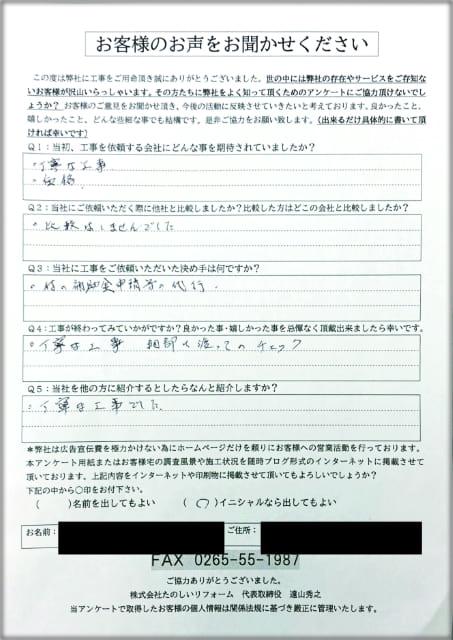 お客様のお声をお聞かせください
この度は弊社に工事をご用命頂き誠にありがとうございました。世の中には弊社の存在やサービスをご存知ない
お客様が沢山いらっしゃいます。その方たちに弊社をよく知って頂くためのアンケートにご協力頂けないでし
ょうか？ お客様のご意見をお聞かせ頂き、今後の活動に反映させていきたいと考えております。良かったこと、
嬉しかったこと、どんな些細な事でも結構です。是非ご協力をお願い致します。（出来るだけ具体的に書いて頂
ければ幸いです）
Q1：当初、工事を依頼する会社にどんな事を期待されていましたか？
・丁寧な工事
・価格
Q2：当社にご依頼いただく際に他社と比較しましたか？比較した方はどこの会社と比較しましたか？
・比較はしませんでした
Q3：当社に工事をご依頼いただいた決め手は何ですか？
の補助金申請等の代行
Q4：工事が終わってみていかがですか？良かった事・嬉しかった事を忌憚なく頂戴出来ましたら幸いです。
・丁寧な工事 細部に渡ってのチェック
Q5：当社を他の方に紹介するとしたらなんと紹介しますか？
・丁寧な工事でした
＊弊社は広告宣伝費を極力かけない為にホームページだけを頼りにお客様への営業活動を行っております。
本アンケート用紙またはお客様宅の調査風景や施工状況を随時ブログ形式のインターネットに掲載させて
頂いております。上記内容をインターネットや印刷物に掲載させて頂いてもよろしいでしょうか？
下記の中から〇印をお付下さい。
（　　）名前を出してもよい　（ 〇 ）イニシャルなら出してもよい
お名前：　ご住所：
FAX 0265-55-1987
ご協力ありがとうございました。
株式会社たのしいリフォーム　代表取締役　遠山秀之
当アンケートで取得したお客様の個人情報は関係法規に基づき厳正に管理いたします。